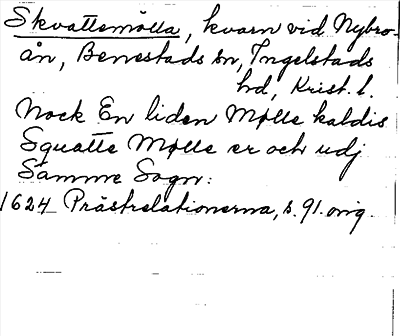 Skvattemölla, kvarn vid Nybro-
ån, Benestads sn, Ingelstads
hd, Krist. l.
Nock En liden Mølle kaldis
Squatte Mølle er och udj
Samme Sogn:
1624 Prästrelationerna, s. 91. orig.